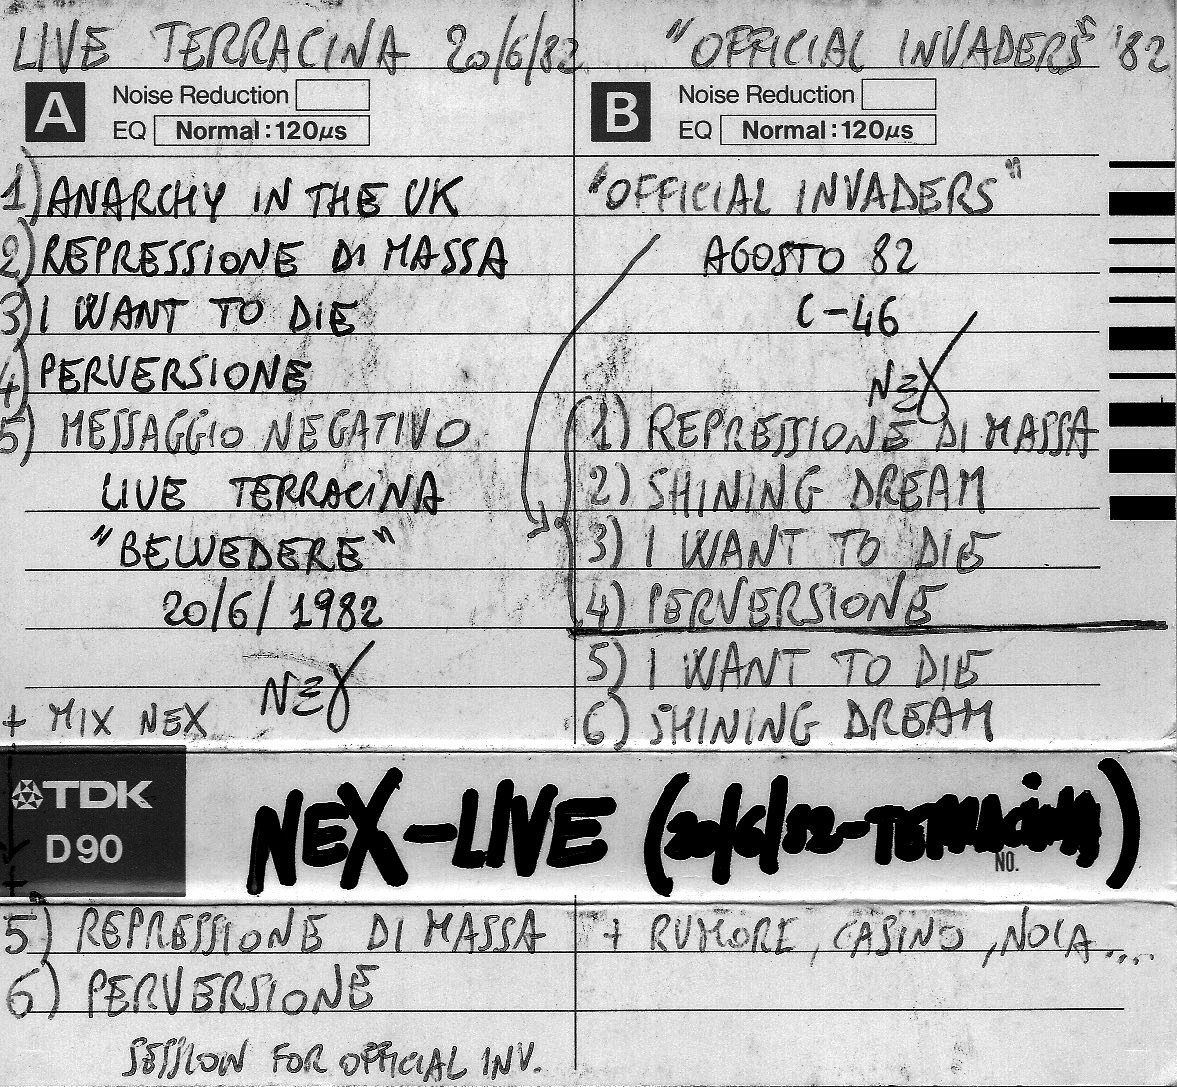 LIVE TERRACINA 20/6/82
A Noise Reduction
EQ Normal:120µs
1) ANARCHY IN THE UK
2) REPRESSIONE DI MASSA
3) I WANT TO DIE
4) PERVERSIONE
5) MESSAGGIO NEGATIVO
LIVE TERRACINA
"BELVEDERE"
20/6/1982
NEX
+ MIX NEX
"OFFICIAL INVADERS" '82
B Noise Reduction
EQ Normal:120µs
"OFFICIAL INVADERS"
AGOSTO 82
C-46
NEX
1) REPRESSIONE DI MASSA
2) SHINING DREAM
3) I WANT TO DIE
4) PERVERSIONE
5) I WANT TO DIE
6) SHINING DREAM
TDK
D90
NEX-LIVE (20/6/82-TERRACINA)
NO.
5) REPRESSIONE DI MASSA
6) PERVERSIONE
SESSION FOR OFFICIAL INV.
+ RUMORE, CASINO, NOIA...